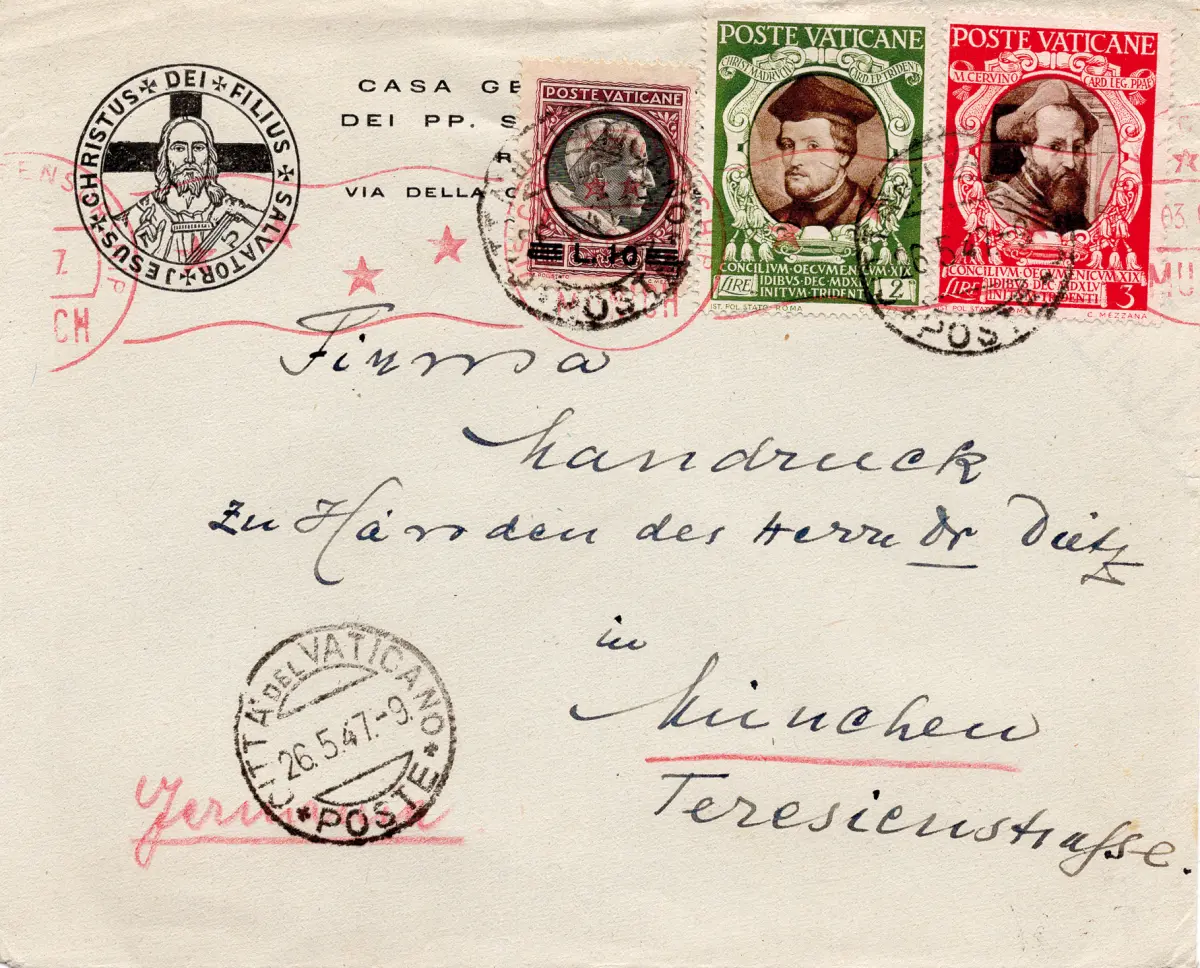 JESUS CHRISTUS DEI FILIUS SALVATOR
CASA GE
DEI PP. S
R
VIA DELLA
POSTE VATICANE
L. 10
POSTE VATICANE
CARD. EP. TRIDENT.
CONCILIVM·OECVMENICVM·XIX
IDIBVS·DEC·MDXLV
INITVM·TRIDENTI
LIRE 2
IST. POL. STATO. ROMA
POSTE VATICANE
M. CERVINO CARD. LEG. PRAES
CONCILIVM·OECVMENICVM·XIX
IDIBVS·DEC·MDXLV
INITVM·TRIDENTI
LIRE 3
C. MEZZANA
POSTE
26.5.47
POSTE
CH
MU
Firma
Handruck
zu Händen des Herrn Dr Dietz
in
München
Teresienstrasse.
CITTÀ DEL VATICANO
26.5.47.-9
POSTE